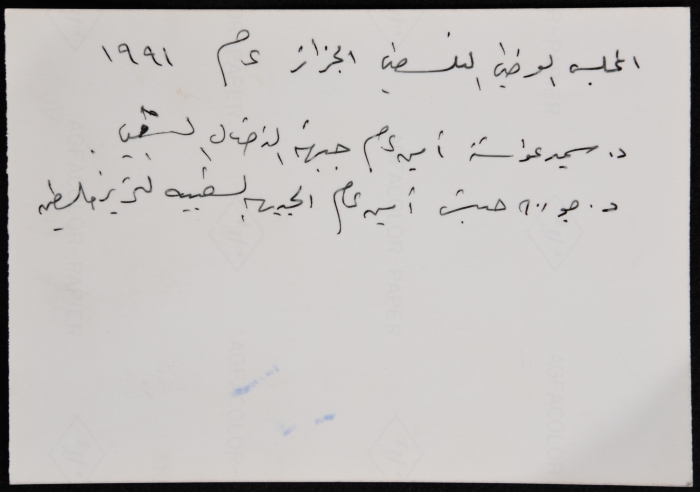 المجلس الوطني الفلسطيني الجزائر عام ١٩٩١
د. سمير غوشة أمين عام جبهة النضال الشعبي.
د. جورج حبش أمين عام الجبهة الشعبية لتحرير فلسطين
AGFACOLOR PAPER